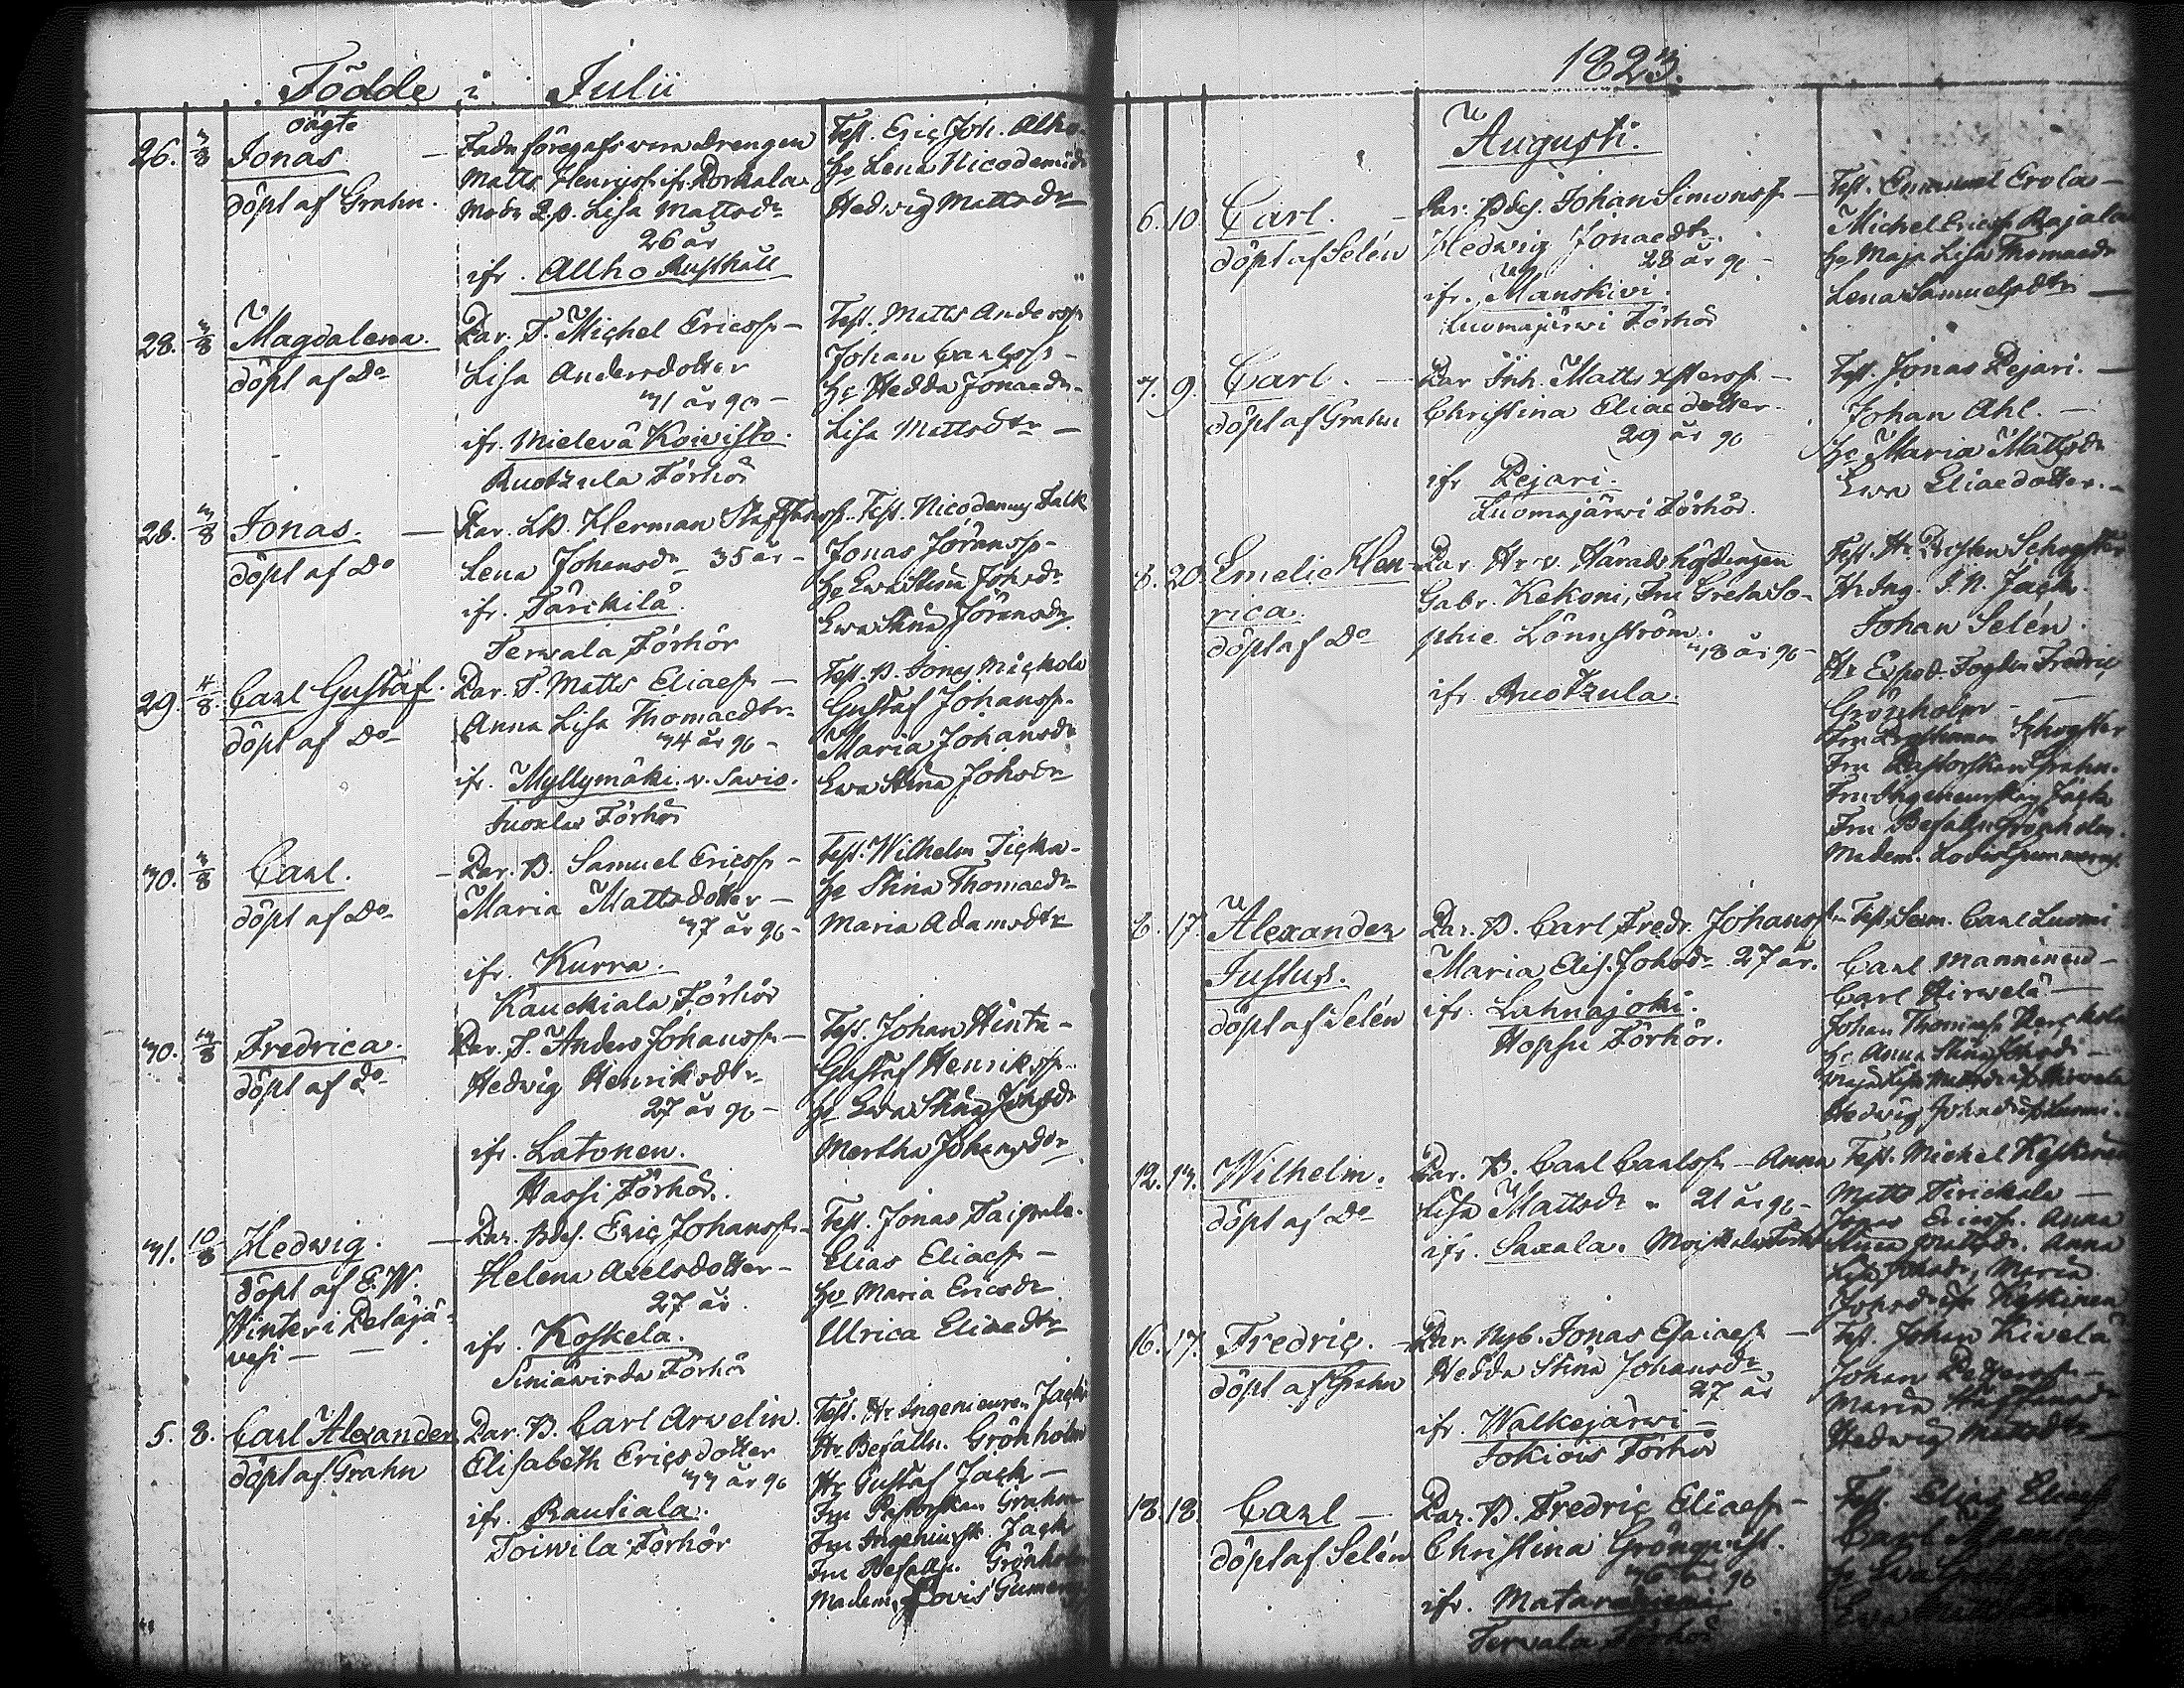 Födde i Julii
oägte
26. 3/8 Jonas
döpt af Grahn.
Matts Henricss. ifr. Porkala
Modr. Q.p. Lisa Mattsdr
26 år
ifr. Allho Rusthåll
Test. Eric Joh. Alho.
Hedvig Mattsdr
28. 3/8 Magdalena.
döpt af Do
Par. T. Michel Ericss. –
Lisa Andersdotter
31 år gl –
ifr. Mielevä Koivisto.
Ruotzula Förhör
Test. Matts Anderss.
Johan Carlss. –
hu Hedda Jonaedr
Lisa Mattsdr –
28. 3/8 Jonas. –
döpt af Do
Lena Johansdr 35 år –
ifr. Tärckilä.
Terwala Förhör
Test. Nicodemus Falk
Jonas Jöranss. –
hu Ewa Stina Johsdr
Ewa Stina Jöransdr.
29. 4/8 Carl Gustaf.
döpt af Do
Par. T. Matts Eliaess. –
Anna Lisa Thomaedtr
34 år gl –
ifr. Myllymäki v. Savio.
Förhör
Gustaf Johanss.
Maria Johansdr
Ewa Stina Johsdr
30. 3/8 Carl.
döpt af Do
Par. B. Samuel Ericss. –
Maria Mattsdotter –
37 år gl –
ifr. Kurra.
Kauckiala Förhör
Test. Wilhelm Ticka –
hu Stina Thomaedr
Maria Adamsdtr
30. 3/8 Fredrica.
döpt af do
Par. T. Anders Johanss. –
Hedvig Henriksdtr
27 år gl –
ifr. Latonen.
Hassi Förhör.
Test. Johan Hinta –
Gustaf Henrikss.
hu Ewa Stina Johsdr
Mertha Johansdtr
31. 10/8 Hedwig. –
döpt af E. W.
Winter i Petäjä-
vesi –
Par. Bds. Eric Johanss. –
Helena Axelsdotter –
27 år.
ifr. Koskela.
Siniäwirda Förhör
Test. Jonas Taipale.
Elias Eliaess. –
hu Maria Ericsdr
Ulrica Eliaedtr
5. 8. Carl Alexander
döpt af Grahn
Par. B. Carl Arvelin.
Elisabeth Ericsdotter
33 år gl
ifr. Rautiala.
Toivila Förhör
Test. Hr Ingenieuren Jack
Hr Befallm. Grönholm
Hr Gustaf Jack –
Fru Pastorskan Grahn
Fru Ingenieursk. Jack
Fru Befallm. Grönholm
Madem. Lovis Gumerus
1823.
Augusti.
6. 10 Carl. –
döpt af Selén
Par. Bds. Johan Simonss. –
Hedwig Jonaedtr.
28 år gl –
ifr. Manskivi.
Luomajärwi Förhör
Test. Emanuel Erola –
Michel Ericss. Rajala
hu Maja Lisa Thomaedr
Lena Samuelsdtr –
7. 9. Carl. –
döpt af Grahn
Par. Inh. Matts
Christina Eliaedotter
29 år gl –
ifr Pejari.
Luomajärwi Förhör.
Test. Jonas Pejari. –
Johan Ahl. –
hu Maria Mattsdr
Ewa Eliaedotter. –
8. 20. Emelie Hen-
rica.
döpt af Do
Par. Hr v. Häradshöfdingen
Gabr. Kekoni, Fru Greta So-
phie Lönnström.
ifr. Ruotzula.
Hr Ing. J. N. Jack.
Johan Selén.
Fredric
Grönholm –
Fru Pastorskan Grahn.
Fru Ingenieurskan Jack
Fru Befallm. Grönholm.
Madem. Lovis Gummerus.
6. 17. Alexander
Justus.
döpt af Selén
Par. B. Carl Fredr. Johanss.
Maria Elis. Johsdr 27 år.
ifr. Lahnajoki.
Hopsu Förhör.
Carl Luomi
Carl Manninen –
Carl Hirvelä –
Johan Thomaess.
hu Anna Stina Johsdr –
12. 13. Wilhelm.
döpt af Do
Par. B. Carl Carlss. – Anna
Lisa Mattsdr 21 år gl –
ifr. Saxala.
Test. Michel Keskinen
Jonas Ericss. Anna
Stina Mattsdr. Anna
Lisa Johsdr, Maria
Johsdr ifr Keskinen
16. 17. Fredric. –
döpt af Grahn
Par. Nyb. Jonas Esaiaess. –
Hedda Stina Johansdr
27 år
ifr. Walkejärwi –
Jokiois Förhör
Test. Johan Kivelä
Johan Petterss. –
Maria
Hedwig Mattsdtr
18. 18 Carl –
döpt af Selén
Par. B. Fredric Eliaess. –
Christina Grönqvist.
ifr.
Terwala Förhör
Test. Elias Eliaess
Carl